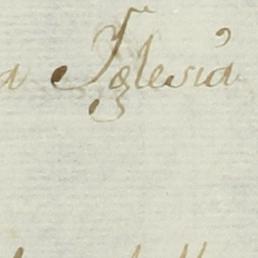 a Iglesia